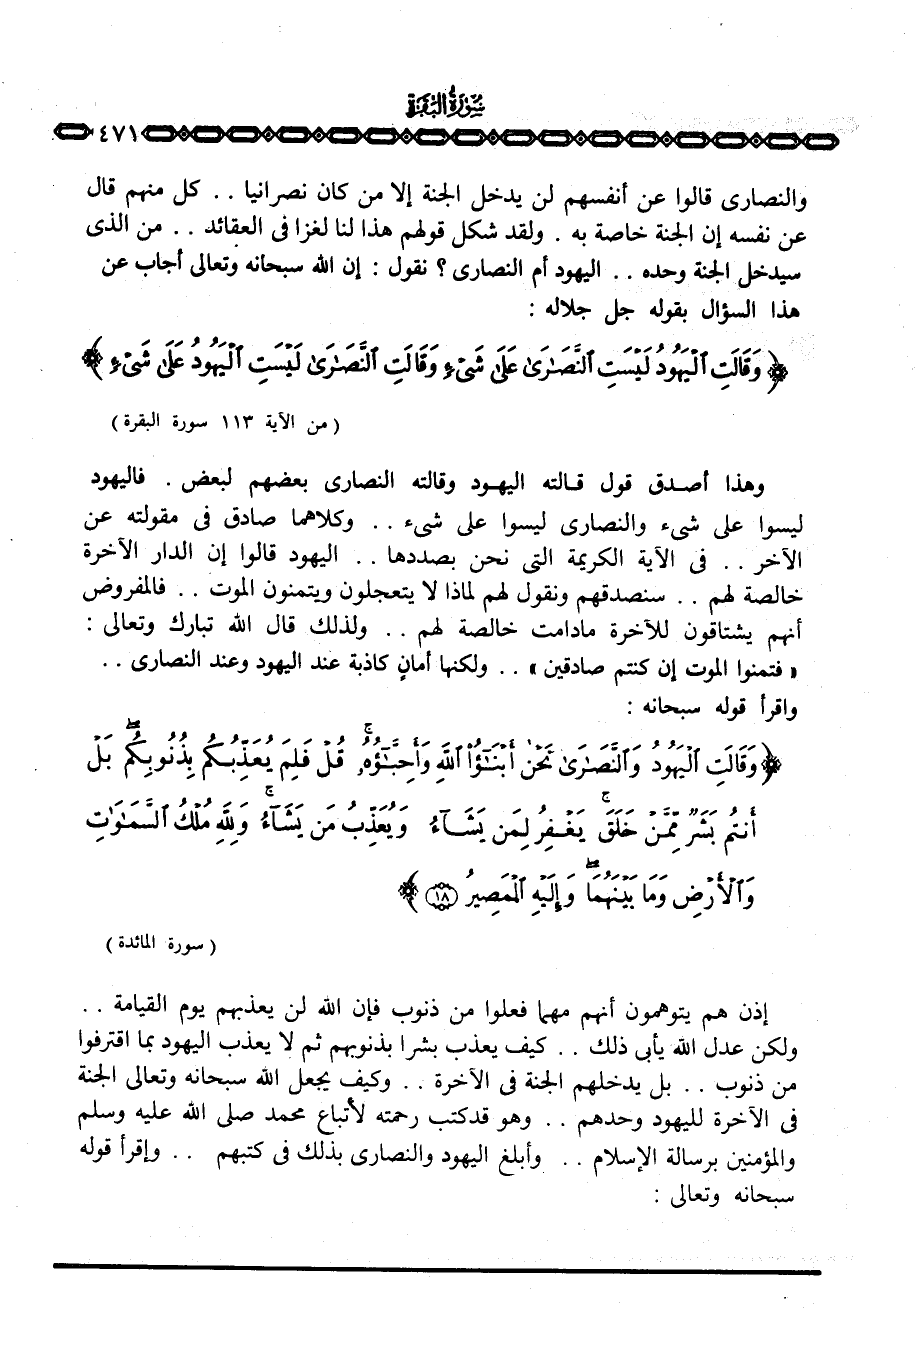 سورة البقرة
٤٧١
والنصارى قالوا عن أنفسهم لن يدخل الجنة إلا من كان نصرانيا .. كل منهم قال
عن نفسه إن الجنة خاصة به . ولقد شكل قولهم هذا لنا لغزا فى العقائد .. من الذى
سيدخل الجنة وحده .. اليهود أم النصارى ؟ نقول : إن الله سبحانه وتعالى أجاب عن
هذا السؤال بقوله جل جلاله :
﴿ وَقَالَتِ ٱلْيَهُودُ لَيْسَتِ ٱلنَّصَٰرَىٰ عَلَىٰ شَىْءٍ وَقَالَتِ ٱلنَّصَٰرَىٰ لَيْسَتِ ٱلْيَهُودُ عَلَىٰ شَىْءٍ ﴾
( من الآية ١١٣ سورة البقرة )
وهذا أصدق قول قالته اليهود وقالته النصارى بعضهم لبعض . فاليهود
ليسوا على شىء والنصارى ليسوا على شىء .. وكلاهما صادق فى مقولته عن
الآخر .. فى الآية الكريمة التى نحن بصددها .. اليهود قالوا إن الدار الآخرة
خالصة لهم .. سنصدقهم ونقول لهم لماذا لا يتعجلون ويتمنون الموت .. فالمفروض
أنهم يشتاقون للآخرة مادامت خالصة لهم .. ولذلك قال الله تبارك وتعالى :
« فتمنوا الموت إن كنتم صادقين » .. ولكنها أمانٍ كاذبة عند اليهود وعند النصارى ..
واقرأ قوله سبحانه :
﴿ وَقَالَتِ ٱلْيَهُودُ وَٱلنَّصَٰرَىٰ نَحْنُ أَبْنَٰٓؤُا۟ ٱللَّهِ وَأَحِبَّٰٓؤُهُۥ ۚ قُلْ فَلِمَ يُعَذِّبُكُم بِذُنُوبِكُم ۖ بَلْ
أَنتُم بَشَرٌ مِّمَّنْ خَلَقَ ۚ يَغْفِرُ لِمَن يَشَآءُ وَيُعَذِّبُ مَن يَشَآءُ ۚ وَلِلَّهِ مُلْكُ ٱلسَّمَٰوَٰتِ
وَٱلْأَرْضِ وَمَا بَيْنَهُمَا ۖ وَإِلَيْهِ ٱلْمَصِيرُ ١٨ ﴾
( سورة المائدة )
إذن هم يتوهمون أنهم مهما فعلوا من ذنوب فإن الله لن يعذبهم يوم القيامة ..
ولكن عدل الله يأبى ذلك .. كيف يعذب بشرا بذنوبهم ثم لا يعذب اليهود بما اقترفوا
من ذنوب .. بل يدخلهم الجنة فى الآخرة .. وكيف يجعل الله سبحانه وتعالى الجنة
فى الآخرة لليهود وحدهم .. وهو قدكتب رحمته لأتباع محمد صلى الله عليه وسلم
والمؤمنين برسالة الإسلام .. وأبلغ اليهود والنصارى بذلك فى كتبهم .. وإقرأ قوله
سبحانه وتعالى :